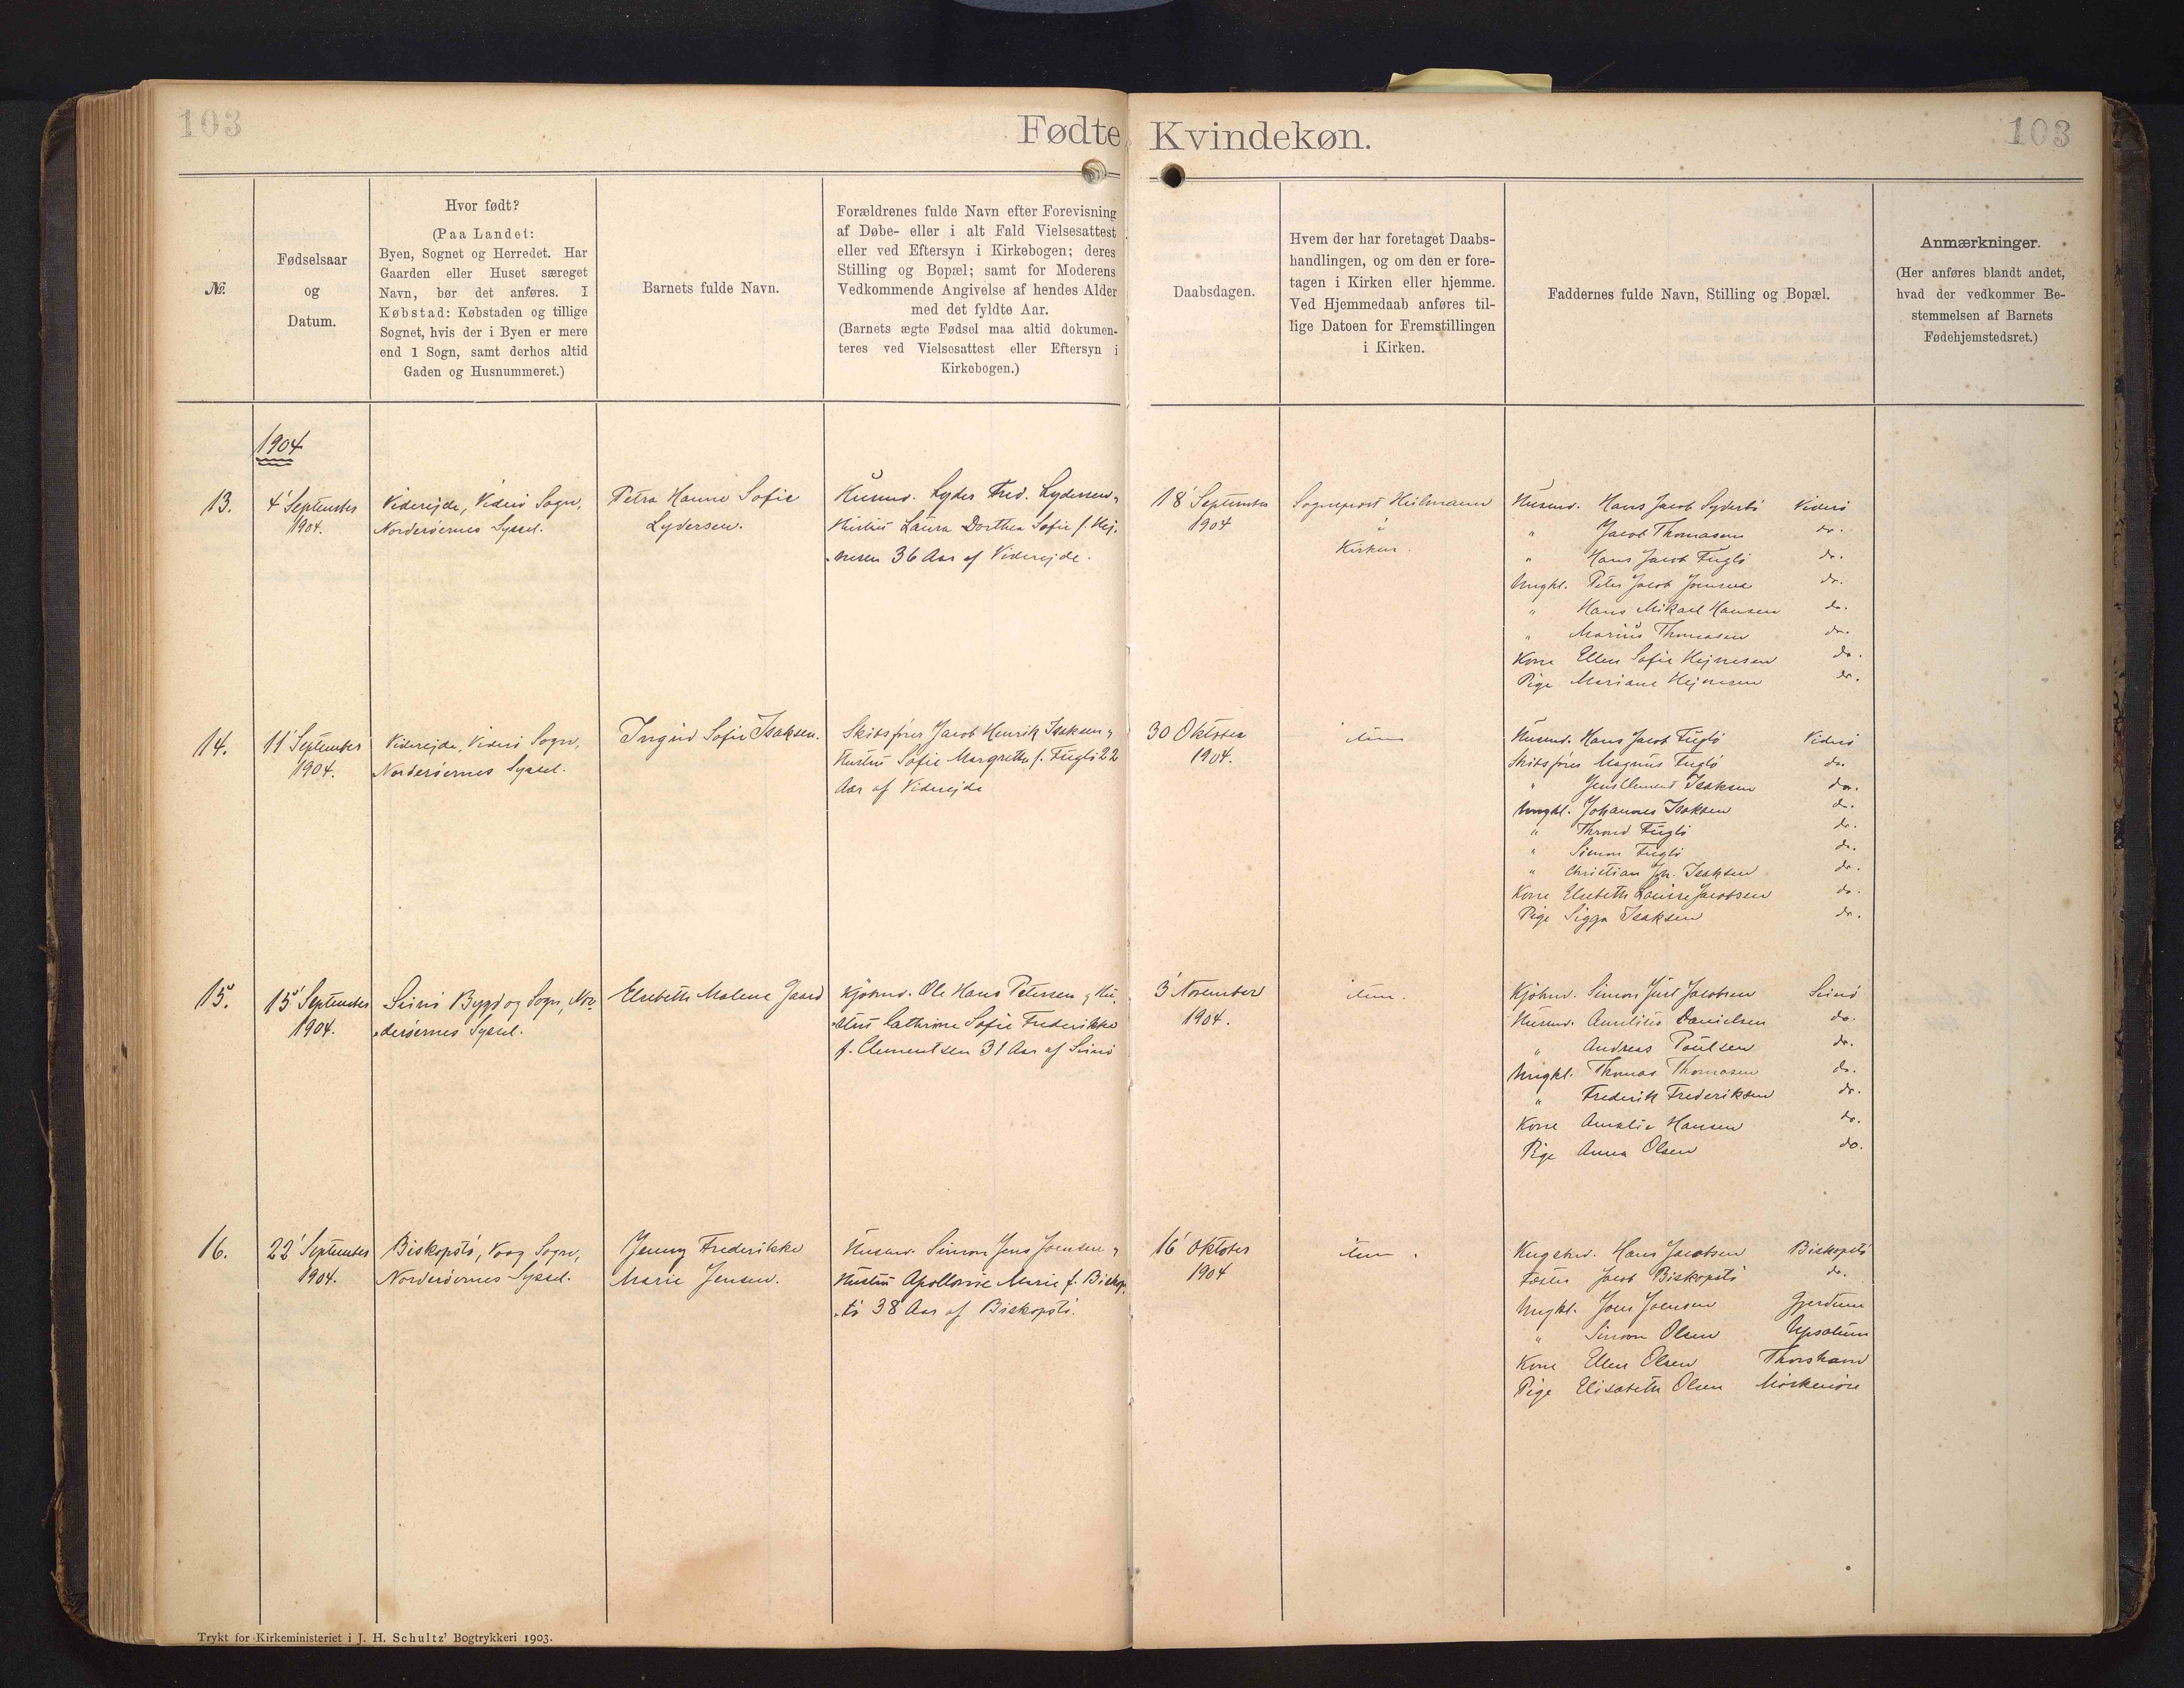 103
Fødte Kvindekøn.
103
№.
Fødselsaar
og
Datum.
Hvor født?
(Paa Landet:
Byen, Sognet og Herredet. Har
Gaarden eller Huset særeget
Navn, bør det anføres. I
Købstad: Købstaden og tillige
Sognet, hvis der i Byen er mere
end 1 Sogn, samt derhos altid
Gaden og Husnummeret.)
Barnets fulde Navn.
Forældrenes fulde Navn efter Forevisning
af Døbe- eller i alt Fald Vielsesattest
eller ved Eftersyn i Kirkebogen; deres
Stilling og Bopæl; samt for Moderens
Vedkommende Angivelse af hendes Alder
med det fyldte Aar.
(Barnets ægte Fødsel maa altid dokumen-
teres ved Vielsesattest eller Eftersyn i
Kirkebogen.)
Daabsdagen.
Hvem der har foretaget Daabs-
handlingen, og om den er fore-
tagen i Kirken eller hjemme.
Ved Hjemmedaab anføres til-
lige Datoen for Fremstillingen
i Kirken.
Faddernes fulde Navn, Stilling og Bopæl.
Anmærkninger.
(Her anføres blandt andet,
hvad der vedkommer Be-
stemmelsen af Barnets
Fødehjemstedsret.)
1904
13.
4 September
1904.
Viderejde, Viderö Sogn,
Norderöernes Syssel.
Petra Hanne Sofie
Lydersen.
Husmd. Lyder Fred. Lydersen,
Hustru Laura Dorthea Sofie f. Hej-
nesen 36 Aar af Viderejde.
18 September
1904
Sogneprest Heilmann
i
Kirken.
Husmd. Hans Jacob Syderbö Viderö
" Jacob Thomasen do.
" Hans Jacob Fuglö do.
Ungkl. Peter Jacob Joensen do.
" Hans Mikael Hansen do.
" Marius Thomasen do.
Kone Ellen Sofie Hejnesen do.
Pige Mariane Hejnesen do.
14.
11 September
1904.
Viderejde, Viderö Sogn,
Norderöernes Syssel.
Ingrid Sofie Isaksen.
Skibsfører Jacob Henrik Isaksen,
Hustru Sofie Margrethe f. Fuglö 22
Aar af Viderejde
30 Oktober
1904.
item
Husmd. Hans Jacob Fuglö Viderö
Skibsfører Magnus Fuglö do.
" Jens Clement Isaksen do.
Ungkl. Johannes Isaksen do.
" Thrond Fuglö do.
" Simon Fuglö do.
" Christian Joh. Isaksen do.
Kone Elsebeth Louise Jacobsen do.
Pige Sigga Isaksen do.
15.
15 September
1904.
Svinö Bygd og Sogn, Nor-
deröernes Syssel.
Elsebeth Malene Gaard
Kjøbmd. Ole Hans Petersen, Hu-
stru Cathrine Sofie Frederikke
f. Clementsen 31 Aar af Svinö
3 November
1904.
item.
Kjøbmd. Simon Just Jacobsen Svinö
Husmd. Aurelius Danielsen do.
" Andreas Poulsen do.
Ungkl. Thomas Thomasen do.
" Frederik Frederiksen do.
Kone Amalie Hansen do.
Pige Anna Olsen do.
16.
22 September
1904.
Biskopstö, Vaag Sogn,
Norderöernes Syssel.
Jenny Frederikke
Marie Jensen.
Husmd. Simon Jens Joensen,
Hustru Apollonie Marie f. Biskop-
stö 38 Aar af Biskopstö.
16 Oktober
1904
item.
Hans Jacobsen Biskopstö
Fæster Jacob Biskopstö do.
Ungkl. Joen Joensen Gjerdum
" Simon Olsen Upsalum
Kone Ellen Olsen Thorshavn
Pige Elisabeth Olsen Mörkenöre
Trykt for Kirkeministeriet i J. H. Schultz' Bogtrykkeri 1903.